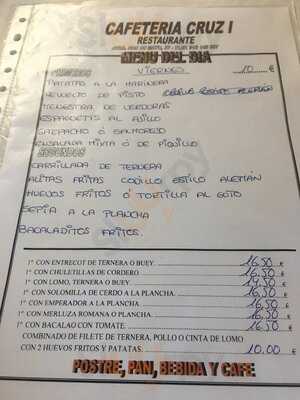 CAFETERIA CRUZ I
RESTAURANTE
MENU DEL DIA
PRIMEROS VIERNES 10 €
PATATAS A LA MARINERA
REVUELTO DE PISTO
MENESTRA DE VERDURAS
ESPAGUETIS AL AJILLO
GAZPACHO Ó SALMOREJO
ENSALADA MIXTA Ó DE PIQUILLO
SEGUNDOS
CARRILLADA DE TERNERA
ALITAS FRITAS CODILLO ESTILO ALEMÁN
HUEVOS FRITOS Ó TORTILLA AL GUSTO
SEPIA A LA PLANCHA
BACALADITOS FRITOS.
1º CON ENTRECOT DE TERNERA O BUEY 16,50 €
1º CON CHULETILLAS DE CORDERO 16,50 €
1º CON LOMO, TERNERA O BUEY 14,50 €
1º CON SOLOMILLA DE CERDO A LA PLANCHA. 16,50 €
1º CON EMPERADOR A LA PLANCHA 16,50 €
1º CON MERLUZA ROMANA O PLANCHA. 16,50 €
1º CON BACALAO CON TOMATE. 16,50 €
COMBINADO DE FILETE DE TERNERA, POLLO O CINTA DE LOMO
CON 2 HUEVOS FRITOS Y PATATAS. 10.00 €
POSTRE, PAN, BEBIDA Y CAFE